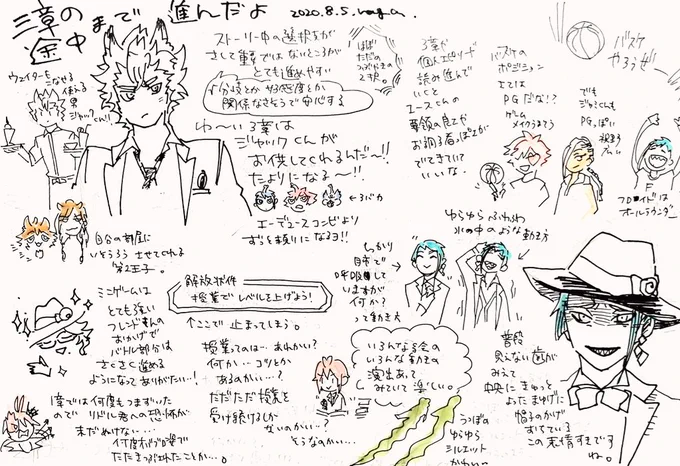 三章の
途中まで 進んだよ
2020.8.5.
ストーリー中の選択肢が
さして重要ではないところが
とても進めやすい
分岐とか好感度とか
関係なさそうで安心する
ほぼ
ただの
つぶやきの
2択。
ウェイターも
こなせる
使える
男
ジャックくん
ゆ〜い3章は
ジャックくんが
お供してくれるんだ〜!!
たよりになる〜!!
エーデュースコンビより
ずっと頼りになるヨ!!
自分の部屋に
いそうろうさせてくれる
第2王子。
ミニゲームは
とても強い
フレンドさんの
おかげで
バトル部分は
さくさく進める
ようになってありがたい…!
1章では何度もつまずいた
ので リドル君への恐怖が
まだぬけない…
何度
たたきつぶされたことか…。
解放条件
授業でレベルを上げよう!
↑ここで止まってしまう。
授業ってのは…あれかい?
何か…コツとか
あるのかい…?
ただただ授業を
受け続けるしか
ないのかい…?
そうなのかい…。
3章や
個人エピソード
読み進んで
いくと
エースくんの
要領の良さや
お調子者っぽさが
でてきていて
いいな.
バスケの
ポジション
エでは
PGだな!?
ゲーム
メイクうまそう
バスケ
やろうぜ
でも
ジャミルくんも
PGっぽい
F
フロイドは
オールラウンダー
ゆらゆらふわふわ
水の中のような動き方
しっかり
自力で
呼吸して
いますが
何か?
って動き方
いろんな場面の
いろんな動きの
演出あって
みていて楽しい。
うつぼの
ゆらゆら
シルエット
かわいー
普段
見えない歯が
みえて
中央にきゅっと
よったまゆげに
帽子のかげ
すてている
この表情すきです
ね。